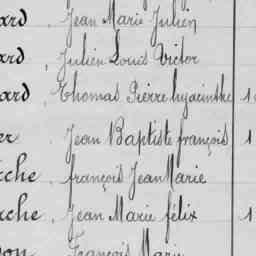 ard, Jean Marie Julien
ard, Julien Louis Victor
ard, Thomas Pierre hyacinthe 1
er, Jean Baptiste françois 1
che, françois Jean Marie
rche, Jean Marie félix 1
on, François Marie